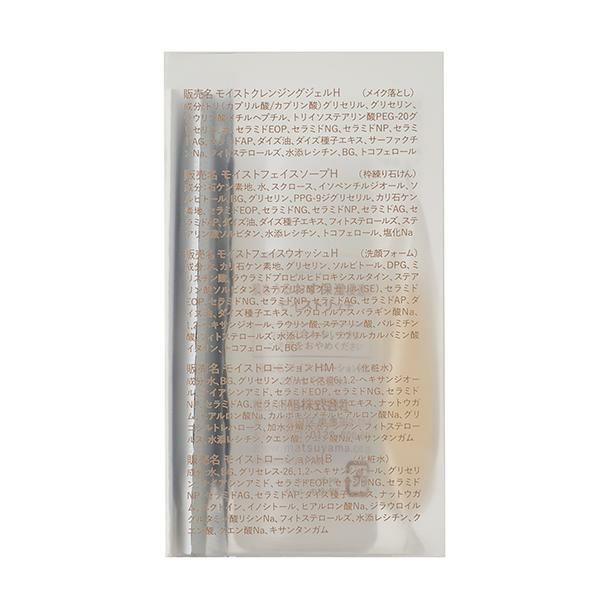 販売名 モイストクレンジングジェルH （メイク落とし）
成分:トリ（カプリル酸/カプリン酸）グリセリル、グリセリン、
ラウリン酸メチルヘプチル、トリイソステアリン酸PEG-20グ
セラミドEOP、セラミドNG、セラミドNP、セラミ
ドAG、セラミドAP、ダイズ油、ダイズ種子エキス、サーファクチ
ンNa、フィトステロールズ、水添レシチン、BG、トコフェロール
販売名 モイストフェイスソープH （枠練り石けん）
成分:石ケン素地、水、スクロース、イソペンチルジオール、ソ
ルビトール、BG、グリセリン、PPG-9ジグリセリル、カリ石ケン
素地、セラミドEOP、セラミドNG、セラミドNP、セラミドAG、セ
ラミドAP、ダイズ油、ダイズ種子エキス、フィトステロールズ、ステ
アリン酸ソルビタン、水添レシチン、トコフェロール、塩化Na
販売名 モイストフェイスウオッシュH （洗顔フォーム）
成分:水、カリ石ケン素地、グリセリン、ソルビトール、DPG、ミ
リスチン酸、ラウラミドプロピルヒドロキシスルタイン、ステア
リン酸ソルビタン、ステアリン酸グリセリル(SE)、セラミド
EOP、セラミドNG、セラミドNP、セラミドAG、セラミドAP、ダ
イズ油、ダイズ種子エキス、ラウロイルアスパラギン酸Na、
1,2-ヘキサンジオール、ラウリン酸、ステアリン酸、パルミチン
酸、フィトステロールズ、水添レシチン、ラウリルカルバミン酸
イヌリン、トコフェロール、BG
販売名 モイストローションHM （化粧水）
成分:水、BG、グリセリン、グリセレス-26、1,2-ヘキサンジオー
ル、ナイアシンアミド、セラミドEOP、セラミドNG、セラミド
NP、セラミドAG、セラミドAP、ダイズ種子エキス、ナットウガ
ム、ヒアルロン酸Na、カルボキシメチルヒアルロン酸Na、グリ
コシルトレハロース、加水分解水添デンプン、フィトステロー
ルズ、水添レシチン、クエン酸、クエン酸Na、キサンタンガム
販売名 モイストローションHB （化粧水）
成分:水、BG、グリセレス-26、1,2-ヘキサンジオール、グリセリ
ン、ナイアシンアミド、セラミドEOP、セラミドNG、セラミド
NP、セラミドAG、セラミドAP、ダイズ種子エキス、ナットウガ
ム、エクトイン、イノシトール、ヒアルロン酸Na、ジラウロイル
グルタミン酸リシンNa、フィトステロールズ、水添レシチン、ク
エン酸、クエン酸Na、キサンタンガム